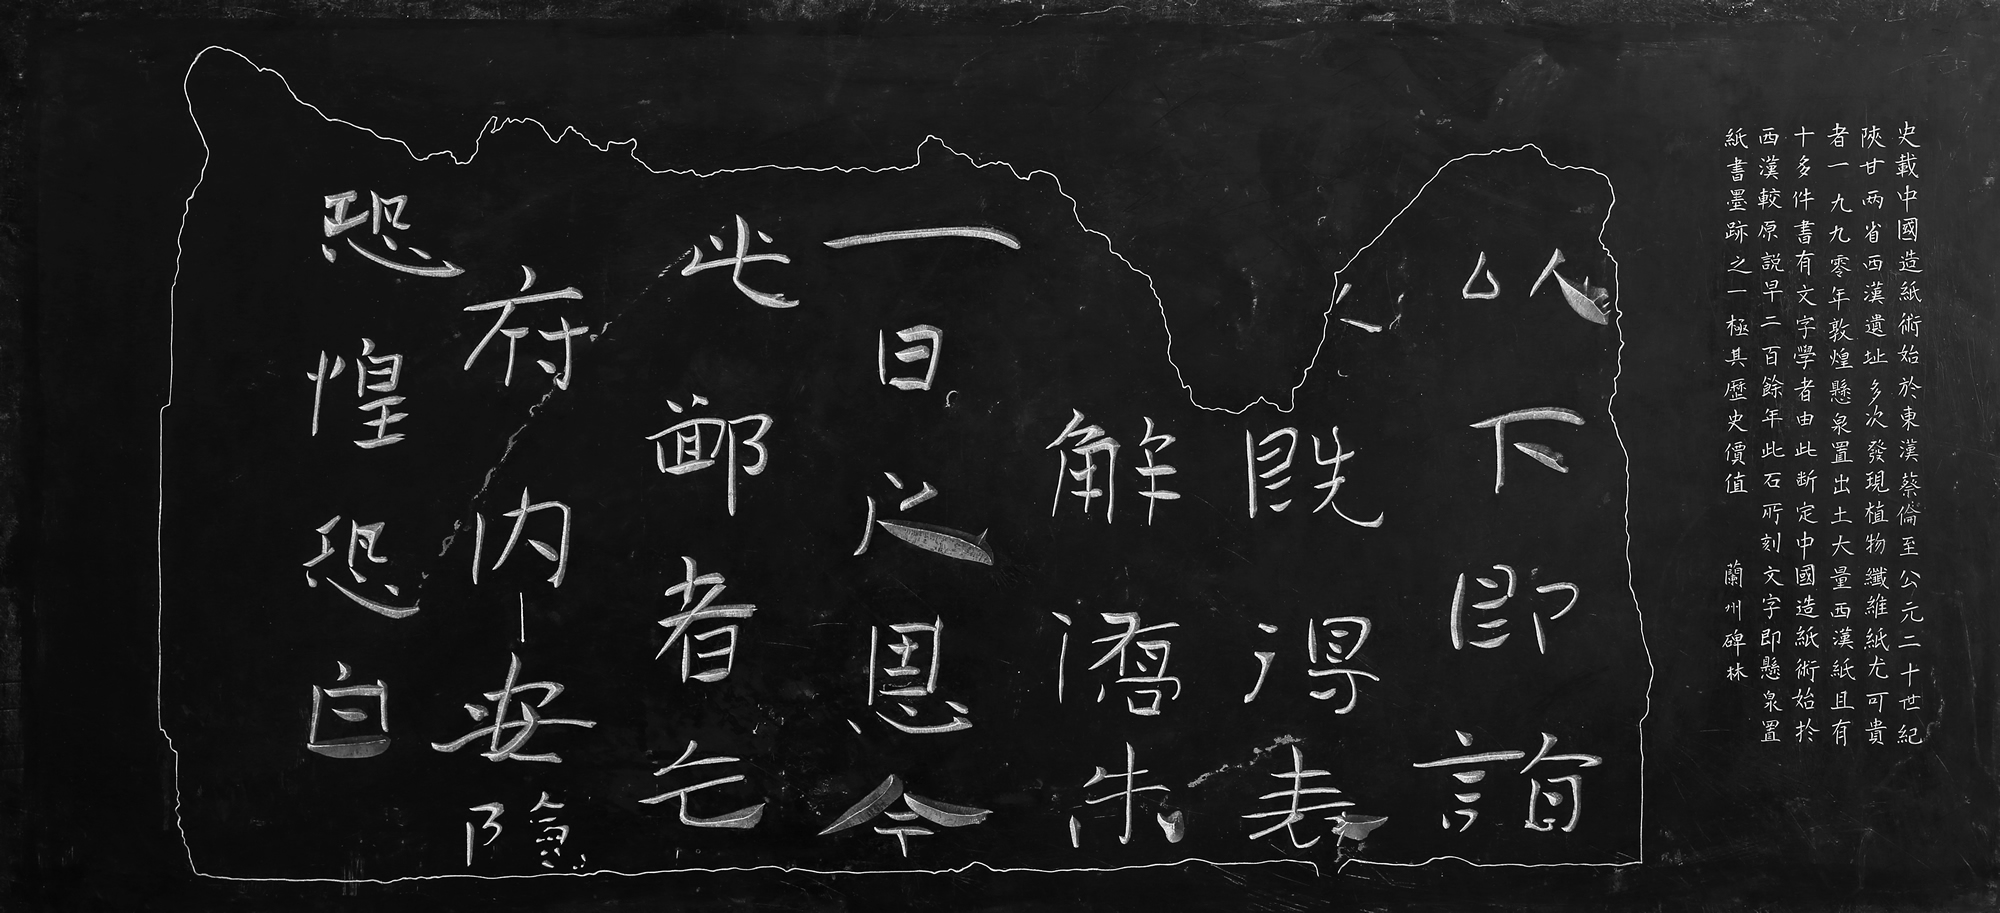 史載中國造紙術始於東漢蔡倫至公元二十世紀
陝甘两省西漢遺址多次發現植物纖維紙尤可貴
者一九九零年敦煌懸泉置出土大量西漢紙且有
十多件書有文字學者由此断定中國造紙術始於
西漢較原説早二百餘年此石所刻文字即懸泉置
紙書墨跡之一極其歷史價值 蘭州碑林
以下即誼
既得表
解
一日之恩今
此鄙者乞
府内安隱
恐惶恐白